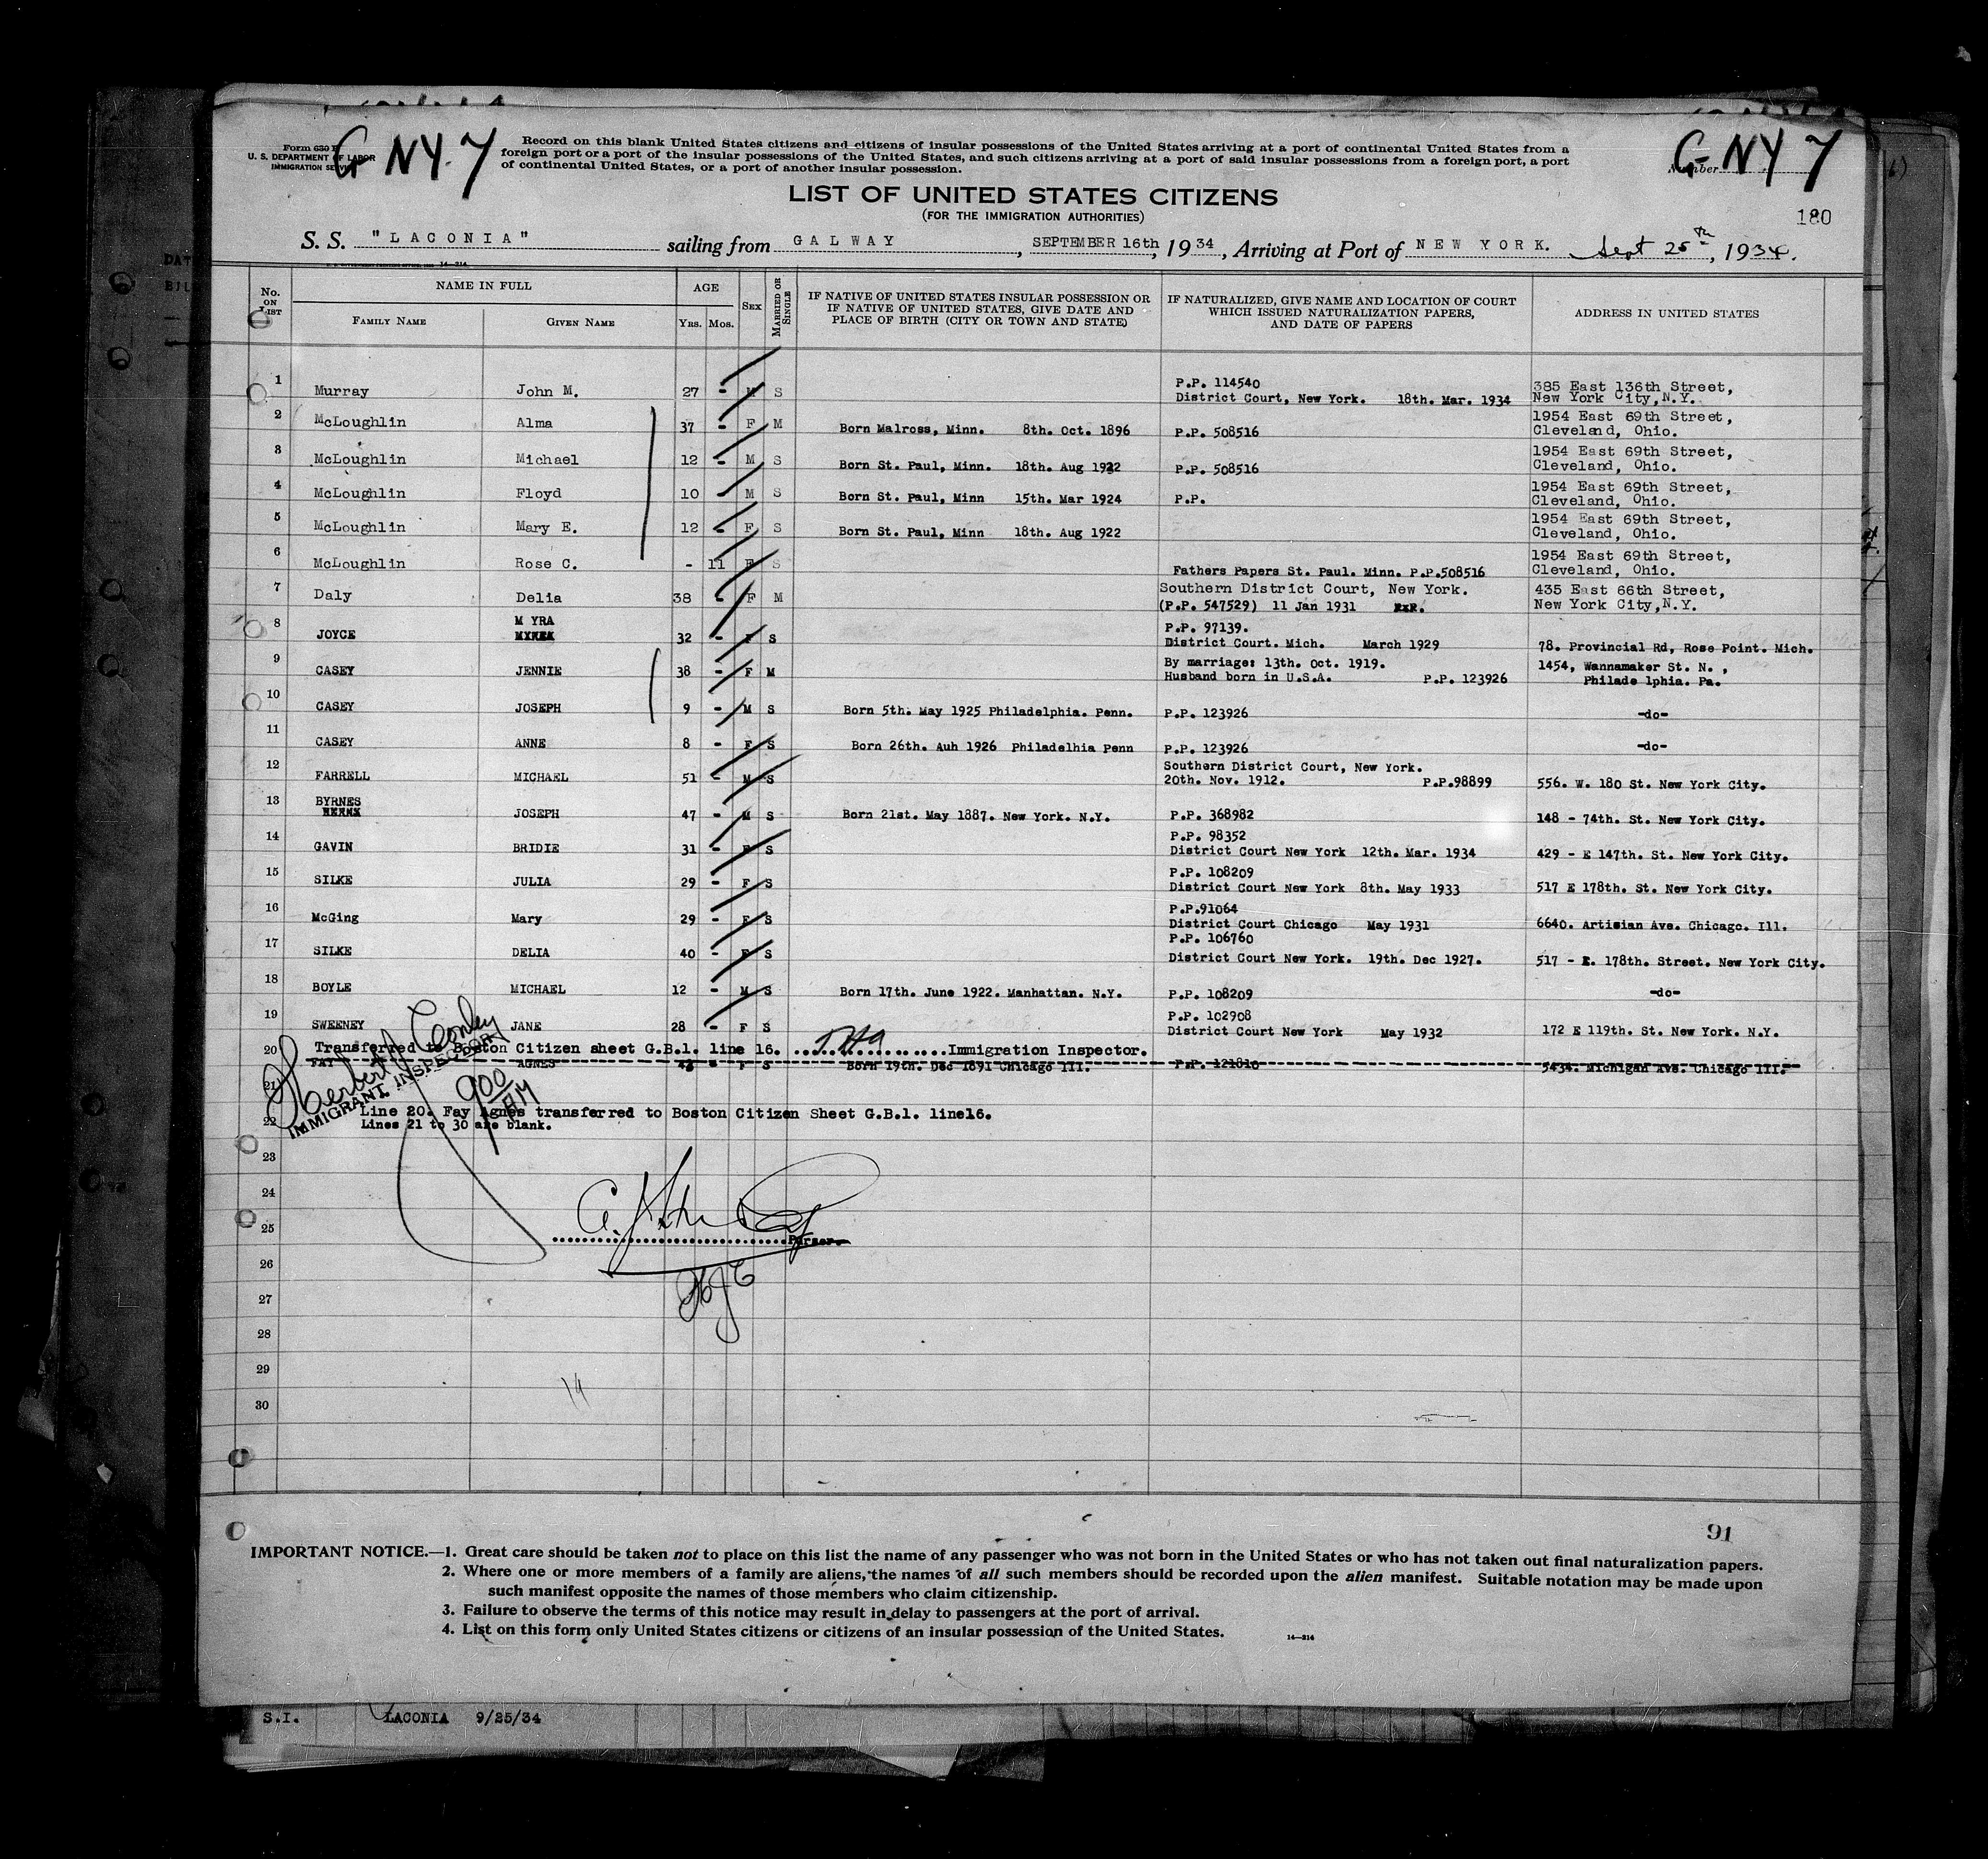 Form 630
U. S. DEPARTMENT OF LABOR
IMMIGRATION
G NY. 7
Record on this blank United States citizens and citizens of insular possessions of the United States arriving at a port of continental United States from a
foreign port or a port of the insular possessions of the United States, and such citizens arriving at a port of said insular possessions from a foreign port, a port
of continental United States, or a port of another insular possession.
G-NY 7
Number
LIST OF UNITED STATES CITIZENS
(FOR THE IMMIGRATION AUTHORITIES)
180
S. S. "LACONIA" sailing from GALWAY, SEPTEMBER 16th, 1934, Arriving at Port of NEW YORK. Sept 25th, 1934.
No. ON LIST
NAME IN FULL
FAMILY NAME GIVEN NAME
AGE
YRS. MOS.
SEX
MARRIED OR SINGLE
IF NATIVE OF UNITED STATES INSULAR POSSESSION OR
IF NATIVE OF UNITED STATES, GIVE DATE AND
PLACE OF BIRTH (CITY OR TOWN AND STATE)
IF NATURALIZED, GIVE NAME AND LOCATION OF COURT
WHICH ISSUED NATURALIZATION PAPERS,
AND DATE OF PAPERS
ADDRESS IN UNITED STATES
1 Murray John M. 27 - M S P.P. 114540
District Court, New York. 18th. Mar. 1934 385 East 136th Street,
New York City, N.Y.
2 McLoughlin Alma 37 - F M Born Malross, Minn. 8th. Oct. 1896 P.P. 508516 1954 East 69th Street,
Cleveland, Ohio.
3 McLoughlin Michael 12 - M S Born St. Paul, Minn. 18th. Aug 1922 P.P. 508516 1954 East 69th Street,
Cleveland, Ohio.
4 McLoughlin Floyd 10 - M S Born St. Paul, Minn 15th. Mar 1924 P.P. 1954 East 69th Street,
Cleveland, Ohio.
5 McLoughlin Mary E. 12 - F S Born St. Paul, Minn 18th. Aug 1922 1954 East 69th Street,
Cleveland, Ohio.
6 McLoughlin Rose C. - 11 F S Fathers Papers St. Paul. Minn. P.P.508516 1954 East 69th Street,
Cleveland, Ohio.
7 Daly Delia 38 - F M Southern District Court, New York.
(P.P. 547529) 11 Jan 1931 435 East 66th Street,
New York City, N.Y.
8 JOYCE M YRA 32 - F S P.P. 97139.
District Court. Mich. March 1929 78. Provincial Rd, Rose Point. Mich.
9 CASEY JENNIE 38 - F M By marriage: 13th. Oct. 1919.
Husband born in U.S.A. P.P. 123926 1454, Wannamaker St. N. ,
Philade lphia. Pa.
10 CASEY JOSEPH 9 - M S Born 5th. May 1925 Philadelphia. Penn. P.P. 123926 -do-
11 CASEY ANNE 8 - F S Born 26th. Auh 1926 Philadelhia Penn P.P. 123926 -do-
12 FARRELL MICHAEL 51 - M S Southern District Court, New York.
20th. Nov. 1912. P.P.98899 556. W. 180 St. New York City.
13 BYRNES JOSEPH 47 - M S Born 21st. May 1887. New York. N.Y. P.P. 368982 148 - 74th. St. New York City.
14 GAVIN BRIDIE 31 - F S P.P. 98352
District Court New York 12th. Mar. 1934 429 - E 147th. St. New York City.
15 SILKE JULIA 29 - F S P.P. 108209
District Court New York 8th. May 1933 517 E 178th. St. New York City.
16 McGing Mary 29 - F S P.P.91064
District Court Chicago May 1931 6640. Artisian Ave. Chicago. Ill.
17 SILKE DELIA 40 - F S P.P. 106760
District Court New York. 19th. Dec 1927. 517 - E. 178th. Street. New York City.
18 BOYLE MICHAEL 12 - M S Born 17th. June 1922. Manhattan. N.Y. P.P. 108209 -do-
19 SWEENEY JANE 28 - F S P.P. 102908
District Court New York May 1932 172 E 119th. St. New York. N.Y.
20 Transferred to Boston Citizen sheet G.B.1. line 16. ........Immigration Inspector.
FAY AGNES - F S Born 19th. Dec 1891 Chicago Ill. P.P. 121810 5434. Michigan Ave. Chicago Ill.
21
Herbert J Conley
IMMIGRANT INSPECTOR
900 AM
Line 20. Fay Agnes transferred to Boston Citizen Sheet G.B.1. line16.
22 Lines 21 to 30 are blank.
23
24
25
Purser.
26
27
28
29
30
91
IMPORTANT NOTICE.—1. Great care should be taken not to place on this list the name of any passenger who was not born in the United States or who has not taken out final naturalization papers.
2. Where one or more members of a family are aliens, the names of all such members should be recorded upon the alien manifest. Suitable notation may be made upon
such manifest opposite the names of those members who claim citizenship.
3. Failure to observe the terms of this notice may result in delay to passengers at the port of arrival.
4. List on this form only United States citizens or citizens of an insular possession of the United States.
14—214
S.I. LACONIA 9/25/34